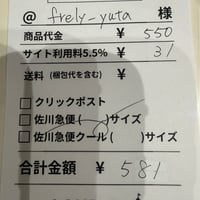 @ frely-yuta 様
商品代金 ¥ 550
サイト利用料5.5% ¥ 31
送料 (梱包代を含む) ¥
□ クリックポスト
□ 佐川急便 ( )サイズ
□ 佐川急便クール ( )サイズ
合計金額 ¥ 581